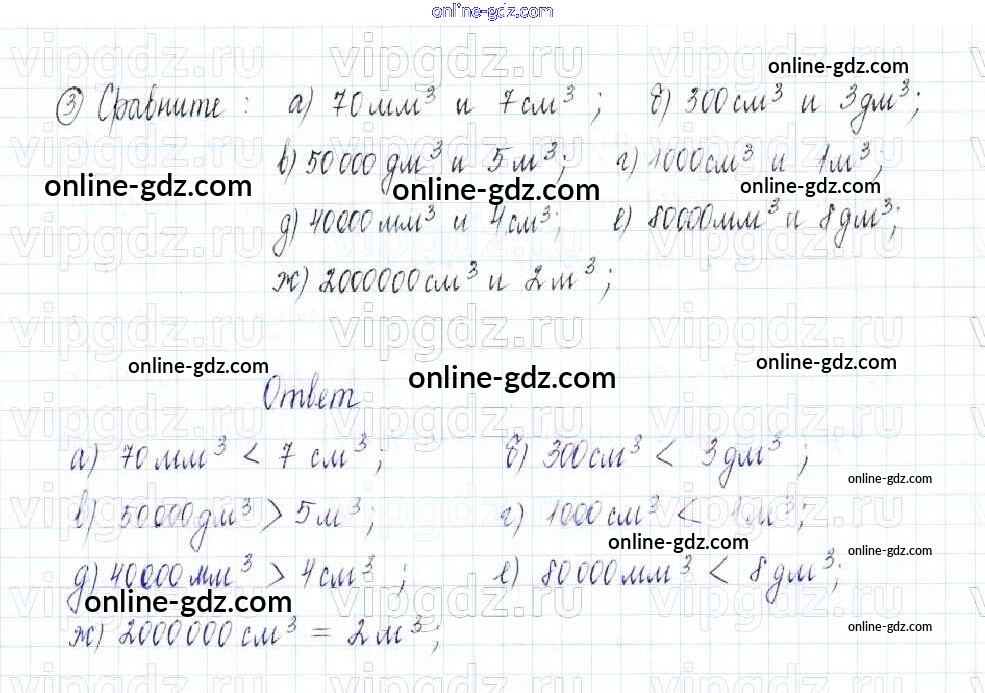 online-gdz.com
vipgdz.ru vipgdz.ru vipgdz.ru
online-gdz.com
③ Сравните : а) 70 мм³ и 7 см³ ; б) 300 см³ и 3 дм³ ;
в) 50000 дм³ и 5 м³ ; г) 1000 см³ и 1 м³ ;
online-gdz.com online-gdz.com online-gdz.com
д) 40000 мм³ и 4 см³ ; е) 80000 мм³ и 8 дм³ ;
ж) 2000000 см³ и 2 м³ ;
vipgdz.ru vipgdz.ru vipgdz.ru
online-gdz.com online-gdz.com online-gdz.com
Ответ
а) 70 мм³ < 7 см³ ; б) 300 см³ < 3 дм³ ;
online-gdz.com
в) 50000 дм³ > 5 м³ ; г) 1000 см³ < 1 м³ ;
online-gdz.com online-gdz.com
д) 40000 мм³ > 4 см³ ; е) 80000 мм³ < 8 дм³ ;
online-gdz.com
ж) 2000000 см³ = 2 м³ ;
online-gdz.com